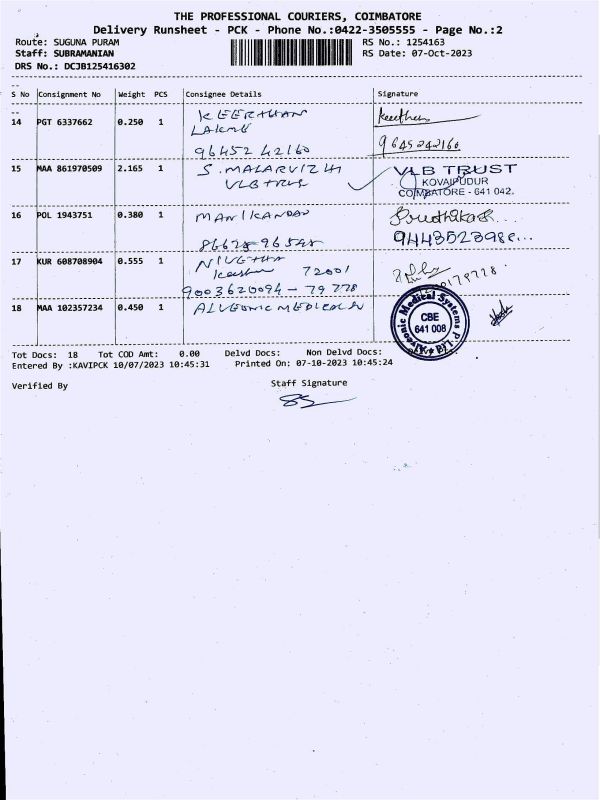 THE PROFESSIONAL COURIERS, COIMBATORE
Delivery Runsheet - PCK - Phone No.:0422-3505555 - Page No.:2
Route: SUGUNA PURAM RS No.: 1254163
Staff: SUBRAMANIAN RS Date: 07-Oct-2023
DRS No.: DCJB125416302
S No Consignment No Weight PCS Consignee Details Signature
14 PGT 6337662 0.250 1 KEERTHAN
LAKME
96452 42160 9645242160
15 MAA 861970509 2.165 1 S. MALARVIZHI VLB TRUST
VLB TRUS KOVAIPUDUR
COIMBATORE - 641 042.
16 POL 1943751 0.380 1 MANIKANDAN
17 KUR 608708904 0.555 1 NIVETHA
72001
9003620094 - 79778
18 MAA 102357234 0.450 1 ALVEONIC MEDICAL
Alveonic Medical Systems P Ltd
CBE
641 008
Tot Docs: 18 Tot COD Amt: 0.00 Delvd Docs: Non Delvd Docs:
Entered By :KAVIPCK 10/07/2023 10:45:31 Printed On: 07-10-2023 10:45:24
Verified By Staff Signature